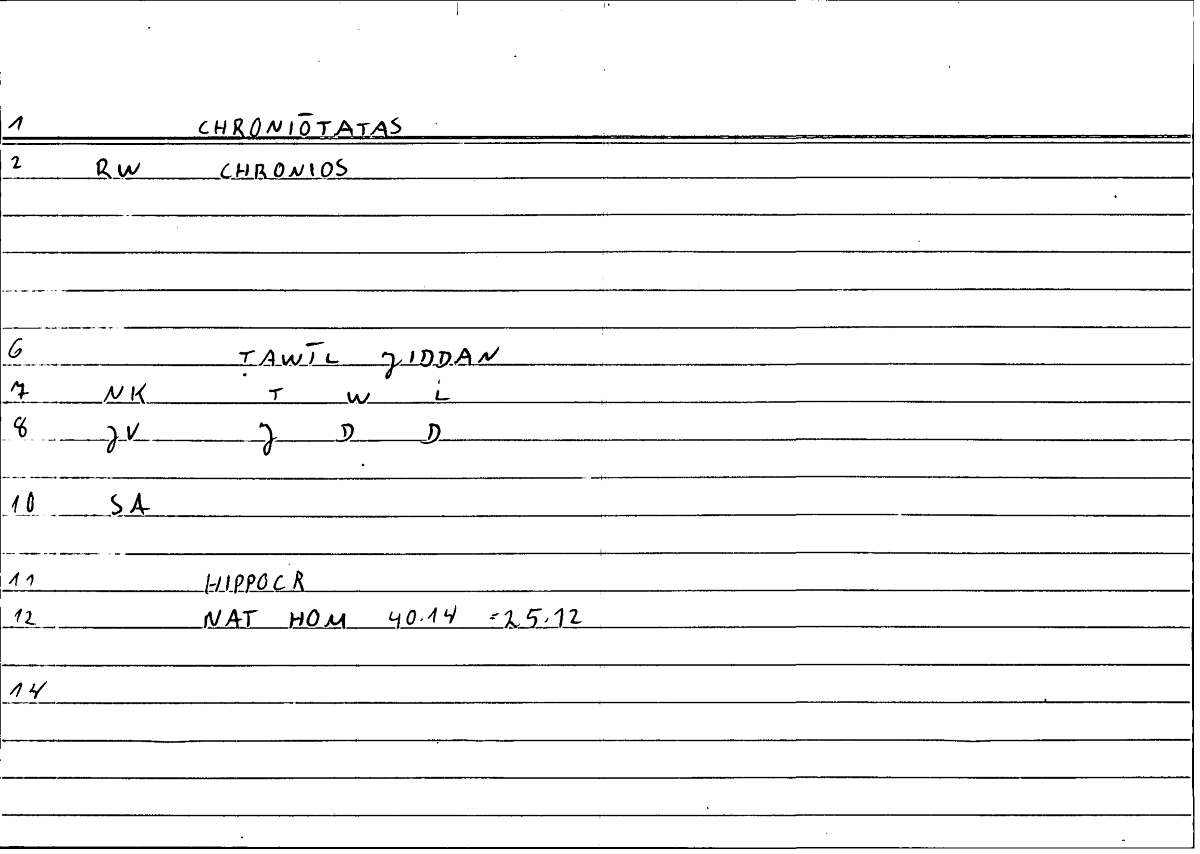 1 CHRONIŌTATAS
2 RW CHRONIOS
6 ṬAWĪL ȜIDDAN
7 NK Ṭ W L
8 ȜV Ȝ D D
10 SA
11 HIPPOCR
12 NAT HOM 40.14 =25.12
14